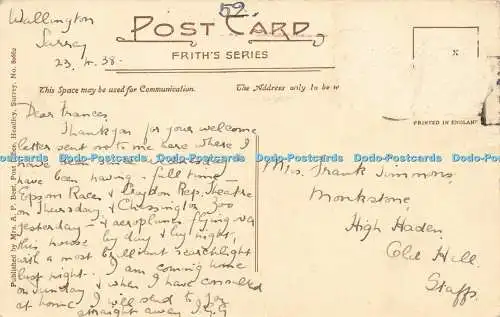 Wallington
Surrey
23. 4. 38.
59.
POST CARD
FRITH'S SERIES
This Space may be used for Communication.
The Address only to be w
X
PRINTED IN ENGLAND
Published by Mrs. A. P. Best, Post Office, Hookley, Surrey. No.
Dear Frances,
Thank you for your welcome
letter sent on to me here where I
have been since Wednesday. I
have been having a full time –
Epsom Races & Croydon Rep. Theatre
on Thursday, & Chessington Zoo
yesterday – & aeroplanes flying over
this house by day & by night,
with a most brilliant searchlight
last night. I am coming home
on Sunday & when I have consulted
at home I will send to Joy
straight away
Mrs. Frank Simmons,
Monkstone,
High Haden,
Old Hill
Staffs.
Dodo-Postcards Dodo-Postcards Dodo-Postcards Dodo-Postcards Dodo-Postcards Dodo-Postcards